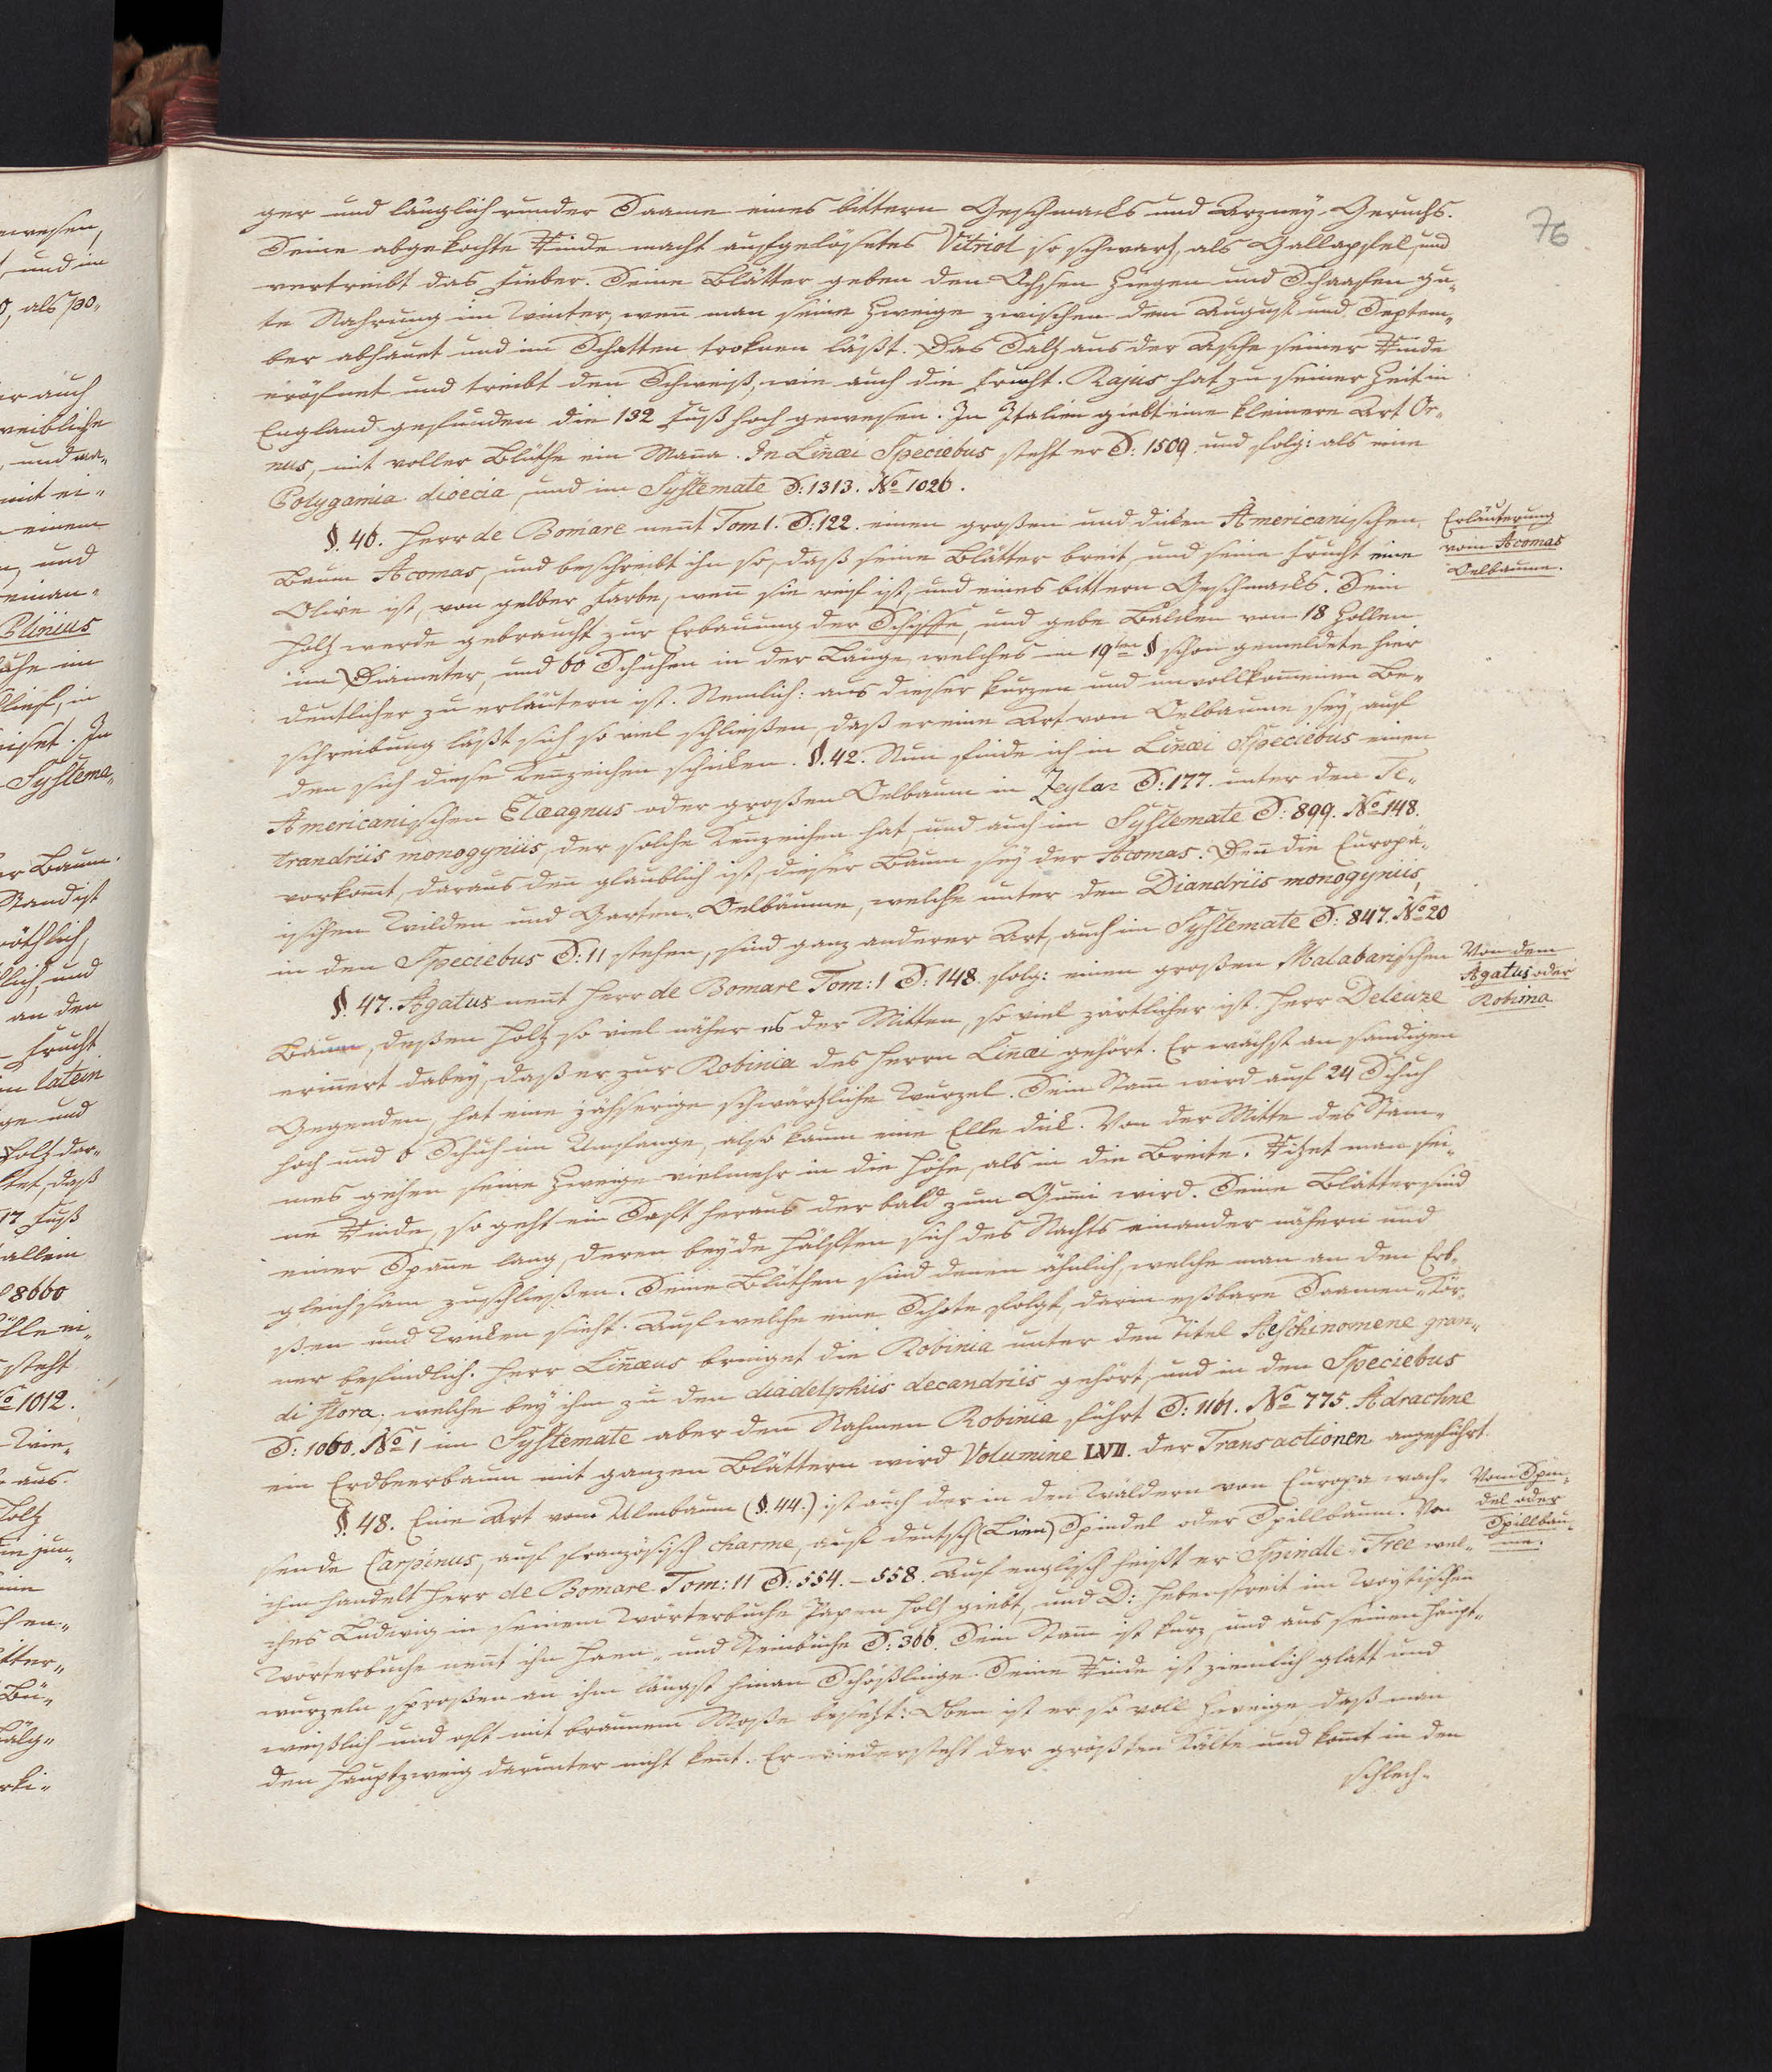 76
ger und länglich runder Saame eines bittern Geschmacks und Arzney-Geruchs.
Seine abgekochte Rinde macht aufgelösetes Vitriol so schwarz, als Gallapfel, und
vertreibt das Fieber. Seine Blätter geben den Ochsen Ziegen und Schaafen gu„
te Nahrung im Winter, weñ man seine Zweige zwischen dem August und Septem„
ber abhauet und im Schatten troknen läßt. Das Salz aus der Asche seiner Rinde
eröfnet und treibt den Schweiß, wie auch die Frucht. Rajus hat zu seiner Zeit in
England gefunden die 132 Fuß hoch gewesen. In Italien giebt eine kleinere Art Or„
nus, mit voller Blüthe ein Mañna. In Liñæi Speciebus steht er S: 1509. und folg: als eine
Polygamia dioecia, und im Systemate S: 1313. No 1026.
§. 46. Herr de Bomare neñt Tom 1. S: 122. einen großen und diken Americanischen
Baum Acomas, und beschreibt ihn so, daß seine Blätter breit, und seine Frucht eine
Olive ist, von gelber Farbe, weñ sie reif ist, und eines bittern Geschmacks. Sein
Holz werde gebraucht zur Erbauung der Schiffe, und gebe Balcken von 18 Zollen
im Diameter, und 60 Schuhen in der Länge, welches in 19ten § schon gemeldete hier
deutlicher zu erläutern ist. Nemlich: aus dieser kurzen und unvollkom̃enen Be„
schreibung läßt sich so viel schließen, daß er eine Art von Oelbaume sey, auf
den sich diese Keñzeichen schiken. §. 42. Nun finde ich in Liñæi Speciebus einen
Americanischen Elæagnus oder großen Oelbaum in Zeylan S: 177. unter den Te„
trandriis monogyniis, der solche Keñzeichen hat, und auch im Systemate S: 899. No 148.
vorkom̃t, daraus deñ glaublich ist, dieser Baum sey der Acomas. Deñ die Europä„
ischen Wilden und Garten-Oelbäume, welche unter den Diandriis monogyniis,
in den Speciebus S: 11 stehen, sind ganz anderer Art, auch im Systemate S: 847. No 20
§. 47. Agatus neñt Herr de Bomare Tom: 1 S: 148. folg: einen großen Malabarischen
Baum, deßen Holz so viel näher es der Mitten, so viel zärtlicher ist. Herr Deleuze
eriñert dabey, daß er zur Robinia des Herrn Liñæi gehört. Er wächst an sandigen
Gegenden, hat eine zähserige schwärzliche Wurzel. Sein Stam̃ wird auf 24 Schuh
hoch und 6 Schuh im Umfange, also kaum eine Elle dick. Von der Mitte des Stam„
mes gehen seine Zweige vielmehr in die Höhe, als in die Breite. Ritzet man sei„
ne Rinde, so geht ein Saft heraus der bald zum Gum̃i wird. Seine Blätter sind
einer Spañe lang, deren beyde Hälften sich des Nachts einander nähern und
gleichsam zuschließen. Seine Blüthen sind denen ähnlich, welche man an den Erb„
ßen und Wicken sieht. Auf welche eine Schote folgt, darin eßbare Saamen-Kör„
ner befindlich. Herr Liñæus bringet die Robinia unter den Titel Aeschinomene gran„
di flora, welche bey ihm zu den diadelphiis decandriis gehört, und in den Speciebus
S: 1060. No 1 im Systemate aber den Nahmen Robinia führt S: 1161. No 775. Adrachne
ein Erdbeerbaum mit ganzen Blättern wird Volumine LVII. der Transactionen angeführt.
§. 48. Eine Art vom Ulmbaum (§. 44.) ist auch der in den Wäldern von Europa wach„
sende Carpinus, auf französisch charme, auf deutsch (Lien) Spindel oder Spillbaum. Von
ihm handelt Herr de Bomare Tom: 11 S: 554. – 558. Auf englisch heißt er Spindle-Tree wel„
ches Ludwig in seinem Wörterbuche Papen Holz giebt, und D: Hebenstreit im Woytischen
Wörterbuche neñt ihn Haen- und Steinbuche S: 366. Sein Stam̃ ist kurz, und aus seinen Haupt„
wurzeln sproßen an ihm längst hinan Schößlinge. Seine Rinde ist ziemlich glatt und
weißlich und oft mit braunem Moße besetzt: Oben ist er so voll Zweige, daß man
den Hauptzweig darunter nicht keñt. Er wiedersteht der größten Kälte und kom̃t in den
schlech-
Erläuterung
vom Acomas
Oelbaume.
Von dem
Agatus oder
Robinia
Vom Spin„
del oder
Spillbau„
me.